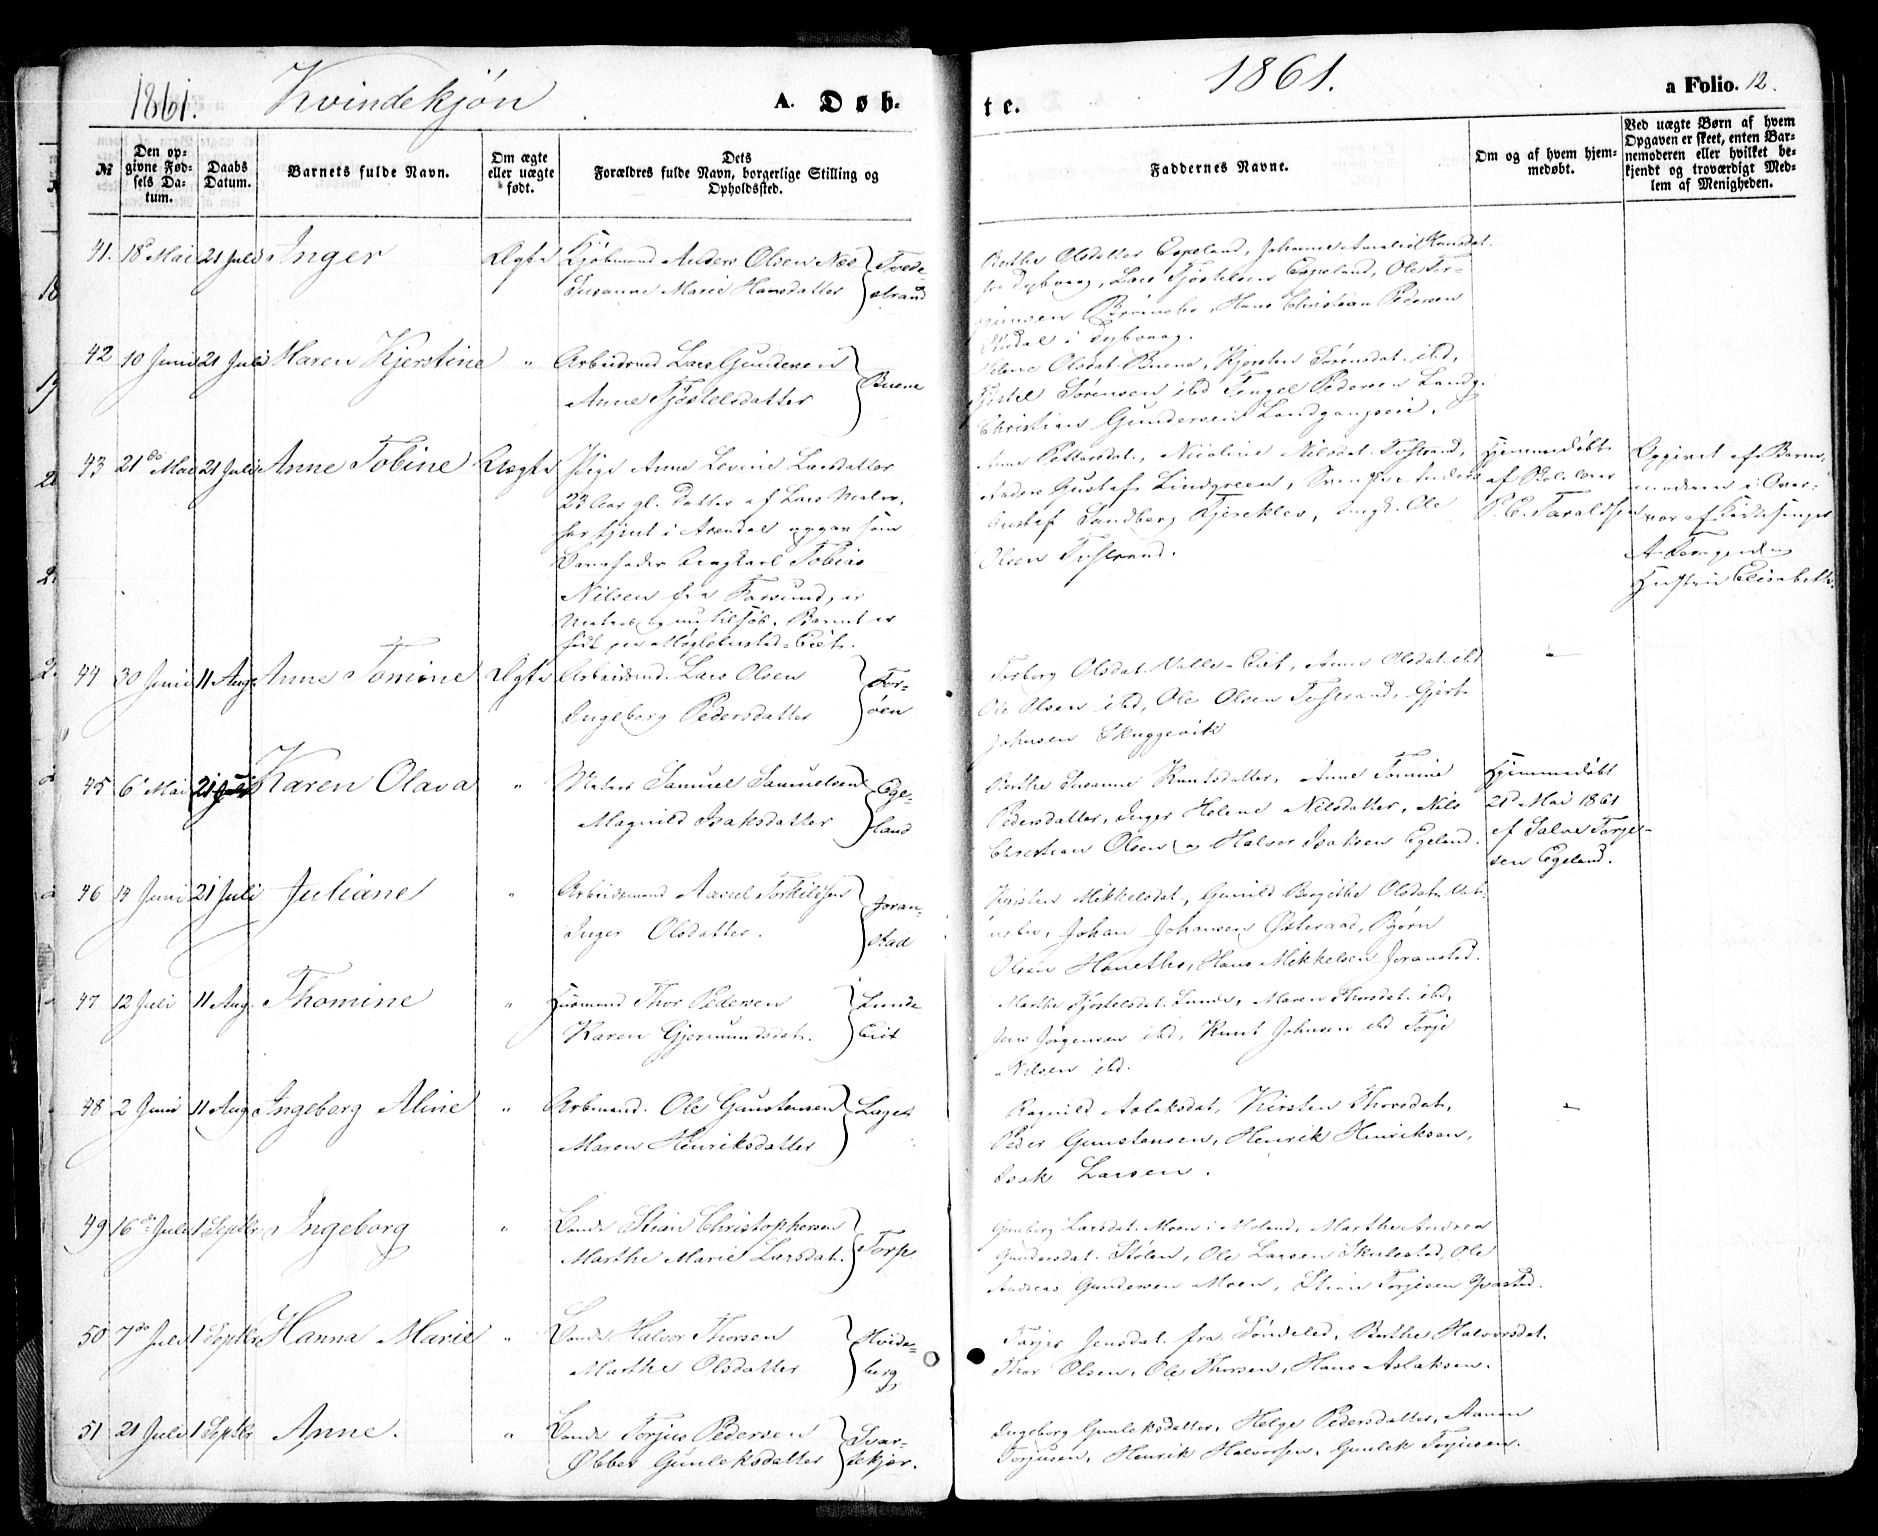 1861. Kvindekjön A. Døb-
te. 1861. a Folio. 12.
№ Den op-givne Fød-sels Da-tum. Daabs Datum. Barnets fulde Navn. Om ægte eller uægte født. Dets Forældres fulde Navn, borgerlige Stilling og Opholdssted.
Faddernes Navne. Om og af hvem hjem-medøbt. Ved uægte Børn af hvem Opgaven er skeet, enten Bar-nemoderen eller hvilket be-kjendt og troværdigt Med-lem af Menigheden.
41. 18 Mai 21 Juli Inger Ægte Kjöbmand Anders Olsen Næs
Susanne Marie Hansdatter
Tvede-
strand
Berthe Olsdatter Espeland, Johanne Amalie Hansdat.
fra Dybvaag, Lars Tjöstelsen Espeland, Ole Ter-
Hans Christian Pedersen
i Dybvaag.
42 10 Juni 21 Juli Maren Kjerstine " Arbeidsmd Lars Gundersen
Anne Tjöstelsdatter
Buene
Olsdat. Buene, Kjersten Sörensdat. ibd,
Sörensen ibd Tengel Pedersen Landg.
Christian Gundersen Landgangseie.
43 21de Mai 21 Juli Anne Tobine Uægte Pige Anne Levine Larsdatter
23 Aar gl. datter af Lars
har tjent i Arendal opgav som
Barnefader Ungkarl Tobias
Nilsen fra Farsund, er
Matros og nu tilsjös. Barnet er
födt paa Møglebustad-Eiet.
Anne Pettersdat., Nicoline Nilsdat. Tostrand,
Anders Gustaf Lindgreen, Svensk, Anders
Gustaf Sandberg Kjerekles, Ungk. Ole
Olsen Tostrand.
Hjemmedöbt
af Skolelærer
P. E. Taraldsen
Opgivet af Barne-
moderen i Over-
vær af Kirkesanger
A. Terngend
Hustru Elisabeth.
44 30 Juni 11 Aug. Anne Tomine Ægte Arbeidsmd. Lars Olsen
Ingeborg Pedersdatter
Tor-
öen
Torborg Olsdat. Valle-Eiet, Anne Olsdat. ibd
Ole Olsen ibd, Ole Olsen Tostrand, Gjert
Johnsen Skuggevik
-
45 6 Mai 21 Juli Karen Olava " Matros Samuel Samuelsen
Magnild Isaksdatter
Ege-
land
Berthe Susanne Knutsdatter, Anne Tomine
Pedersdatter, Inger Helene Nilsdatter, Nils
Christian Olsen og Halvor Isaksen Egeland.
Hjemmedöbt
21de Mai 1861
af Salve Terjes-
sen Egeland.
46 14 Juni 21 Juli Juliane " Arbeidsmand Aavel Torkildsen
Inger Olsdatter.
Joran-
stad
Kjersten Mikkelsdat., Gunild Birgithe Olsdat.
Johan Johansen Østeraad, Bjørn
Olsen Haneths, Hans Mikkelsen Joranstad.
47 12 Juli 11 Aug. Thomine " Husmand Thor Pedersen
Karen Gjermundsdat.
Lunde
Eiet
Marthe Tjöstelsdat. Lunde, Maren Thorsdat. ibd,
Jens Jörgensen ibd, Knut Johnsen ibd Terje
Nilsen ibd.
48 2 Juni 11 Aug. Ingeborg Aline " Arbmand. Ole Gunstensen
Maren Henriksdatter
Laget
Ragnild Aslaksdat, Kirsten Thorsdat,
Peder Gunstensen, Henrik Henriksen,
Isak Larsen.
-
49 16de Juli 1 Septbr Ingeborg " Bonde Stian Christophersen
Marthe Marie Larsdat.
Torp
Gunborg Larsdat. Moen i Moland, Marthe Andrea
Gundersdat. Stölen, Ole Larsen Skulestad, Ole
Andreas Gundersen Moen, Stian Terjesen
50 7de Juli 1 Septbr Hanna Marie " Bonde Halvor Thorsen
Marthe Olsdatter
Hvide-
berg
Terjer Jensdat. fra Söndeled, Berthe Halvorsdat.
Thor Olsen, Ole Thorsen, Hans Aslaksen.
51 21 Juli 1 Septbr Anne. " Bonde Terjus Pedersen
Gunleksdatter
Svar-
tekjær.
Ingeborg Gunleksdatter, Helge Pedersdatter, Aanen
Terjusen, Henrik Halvorsen, Gunlek Terjusen.